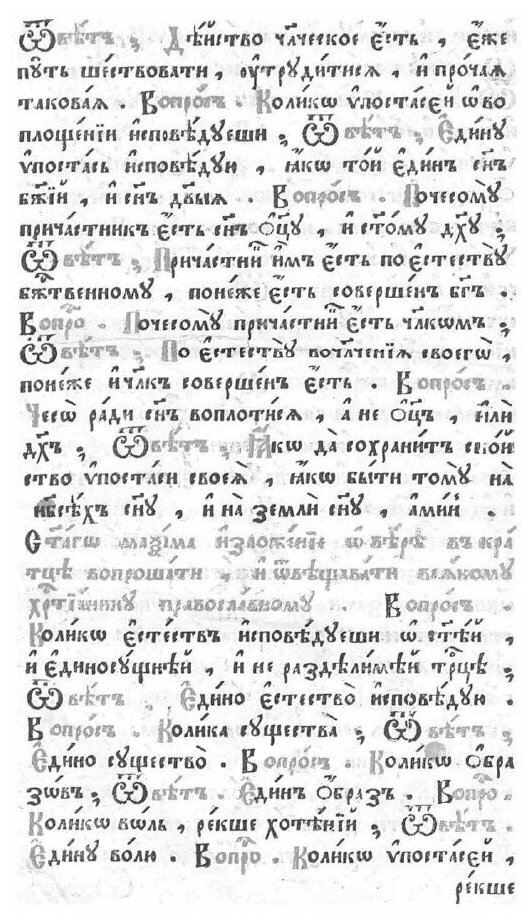 Ѿвѣтъ ; Дѣйство чл҃ческое є҆́сть , є҆́же
пꙋ́ть ше́ствовати , ᲂу҆трꙋди́тисѧ , и҆ про́чаѧ
такова́ѧ . Вопро́съ . Коли́кѡ ѵ҆поста́сей ѡ҆ во
площе́нїи и҆сповѣ́дꙋеши ; Ѿвѣ́тъ ; Є҆ди́нꙋ
ѵ҆поста́сь и҆сповѣ́дꙋю , ꙗ҆́кѡ то́й є҆ди́нъ сн҃ъ
бж҃їй , и҆ сн҃ъ дв҃ыѧ . Вопро́съ . Почесомꙋ̀
прича́стникъ є҆́сть сн҃ъ ѻ҆ц҃ꙋ̀ , и҆ ст҃о́мꙋ дх҃ꙋ ;
Ѿвѣ́тъ ; Прича́стнїй и҆̀мъ є҆́сть по є҆стествꙋ̀
бж҃твенномꙋ , поне́же є҆́сть соверше́нъ бг҃ъ .
Вопро . Почесомꙋ̀ прича́стнїй є҆́сть чл҃кѡмъ ;
Ѿвѣ́тъ ; По є҆стествꙋ̀ вочл҃че́нїѧ своегѡ̀ ,
поне́же и҆ чл҃къ соверше́нъ є҆́сть . Вопро́съ .
Чесѡ̀ ра́ди сн҃ъ воплоти́сѧ , а҆ не ѻ҆ц҃ъ , и҆лѝ
дх҃ъ ; Ѿвѣ́тъ ; Ꙗ҆́кѡ да сохрани́тъ сво́й
ство ѵ҆поста́си своеѧ̀ , ꙗ҆́кѡ бы́ти томꙋ̀ на
нб҃сѣ́хъ сн҃ꙋ , и҆ на землѝ сн҃ꙋ , а҆ми́нь .
Ст҃а́гѡ маѯима и҆зложе́нїе ѡ҆ вѣ́рѣ въ кра́
тцѣ вопроша́ти , и҆ ѿвѣщава́ти всѧ́комꙋ
хрⷭ҇тїа́нинꙋ правосла́вномꙋ . Вопро́съ .
Коли́кѡ є҆сте́ствъ и҆сповѣ́дꙋеши ѡ҆ ст҃ѣ́й ,
и҆ є҆диносꙋ́щнѣй , и҆ не раздѣли́мѣй трⷪ҇цѣ ;
Ѿвѣ́тъ . Є҆ди́но є҆стество̀ и҆сповѣ́дꙋю .
Вопро́съ . Коли́ка сꙋщества̀ ; Ѿвѣ́тъ ;
Є҆ди́но сꙋщество̀ . Вопро́съ . Коли́кѡ ѻ҆́бра
зѡвъ ; Ѿвѣ́тъ . Є҆ди́нъ ѻ҆́бразъ . Вопро .
Коли́кѡ во́ль , ре́кше хотѣ́нїй ; Ѿвѣ́тъ .
Є҆ди́нꙋ во́лю . Вопро . Коли́кѡ ѵ҆поста́сей ,
ре́кше